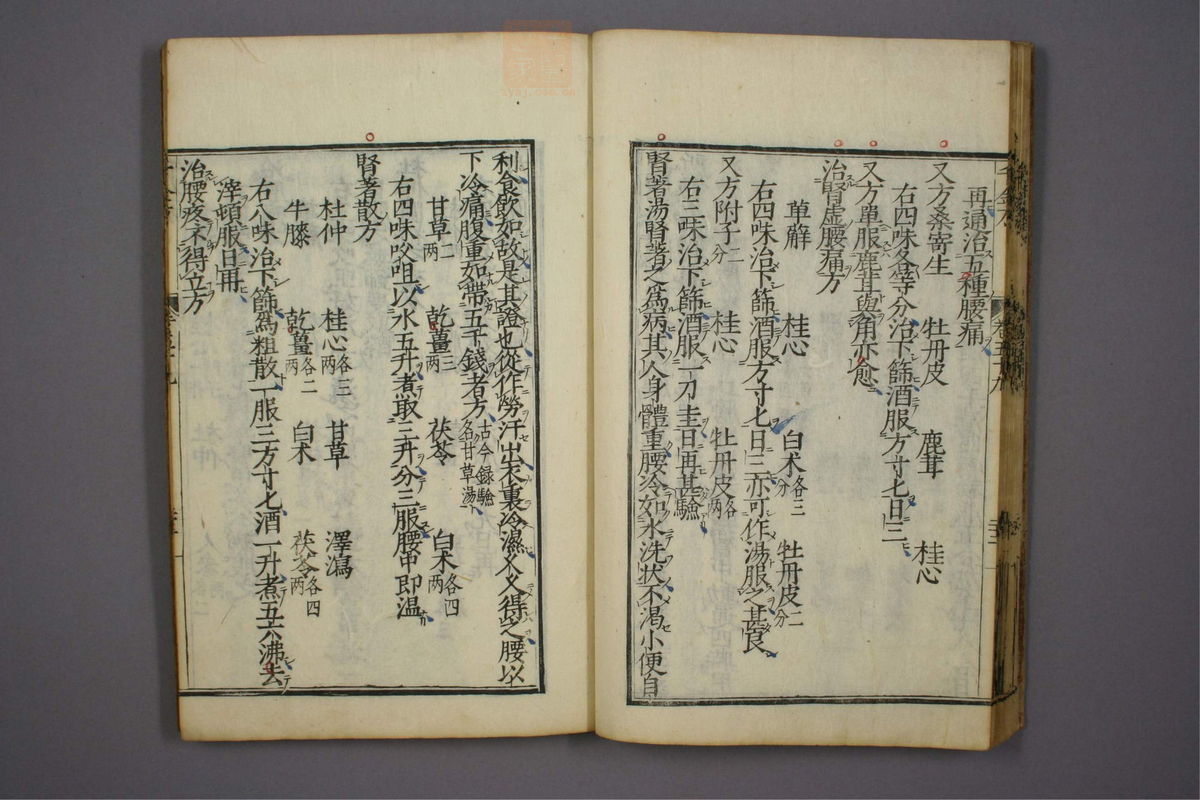 再通治五種腰痛
又方桑寄生　牡丹皮　鹿茸　桂心
右四味各等分治下篩酒服方寸匕日三
又方單服鹿茸與角亦愈
治腎虛腰痛方
萆薢　桂心　白术各三分　牡丹皮二分
右四味治下篩酒服方寸匕日三亦可作湯服之甚良
又方附子二分　桂心　牡丹皮各兩
右三味治下篩酒服一刀圭日再甚驗
腎著湯腎著之爲病其人身體重腰冷如水洗狀不渴小便自
利食飲如故是其證也從作勞汗出衣裏冷濕久久得之腰以
下冷痛腹重如帶五千錢者方古今錄驗名甘草湯
甘草二两　乾薑三两　茯苓　白术各四两
右四味㕮咀以水五升煮取三升分三服腰中即温
腎著散方
杜仲　桂心各三两　甘草　澤瀉
牛膝　乾薑各二两　白术　茯苓各四两
右八味治下篩爲粗散一服三方寸匕酒一升煮五六沸去
滓頓服日再
治腰疼不得立方